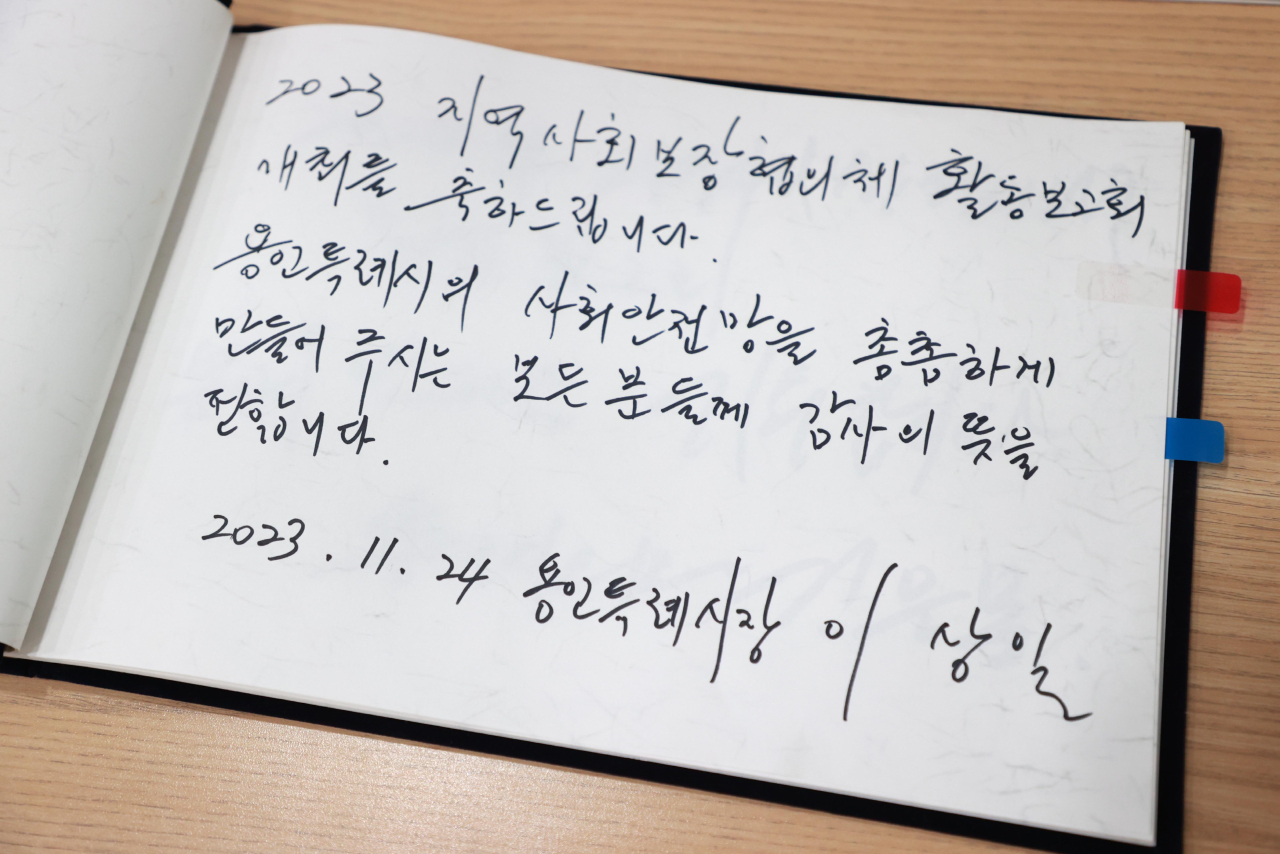 2023 지역사회보장협의체 활동보고회
개최를 축하드립니다.
용인특례시의 사회안전망을 촘촘하게
만들어 주시는 모든 분들께 감사의 뜻을
전합니다.
2023. 11. 24 용인특례시장 이상일